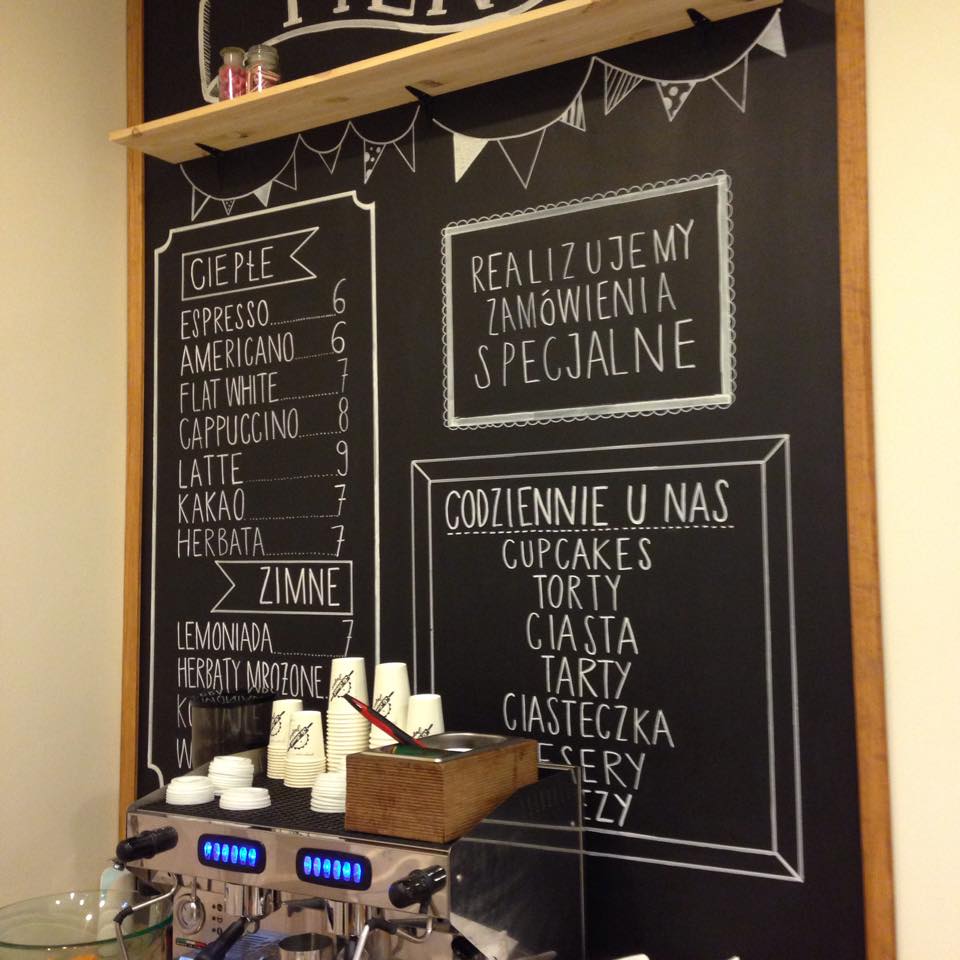 CIEPŁE
ESPRESSO 6
AMERICANO 6
FLAT WHITE 7
CAPPUCCINO 8
LATTE 9
KAKAO 7
HERBATA 7
ZIMNE
LEMONIADA 7
HERBATY MROŻONE
REALIZUJEMY
ZAMÓWIENIA
SPECJALNE
CODZIENNIE U NAS
CUPCAKES
TORTY
CIASTA
TARTY
CIASTECZKA